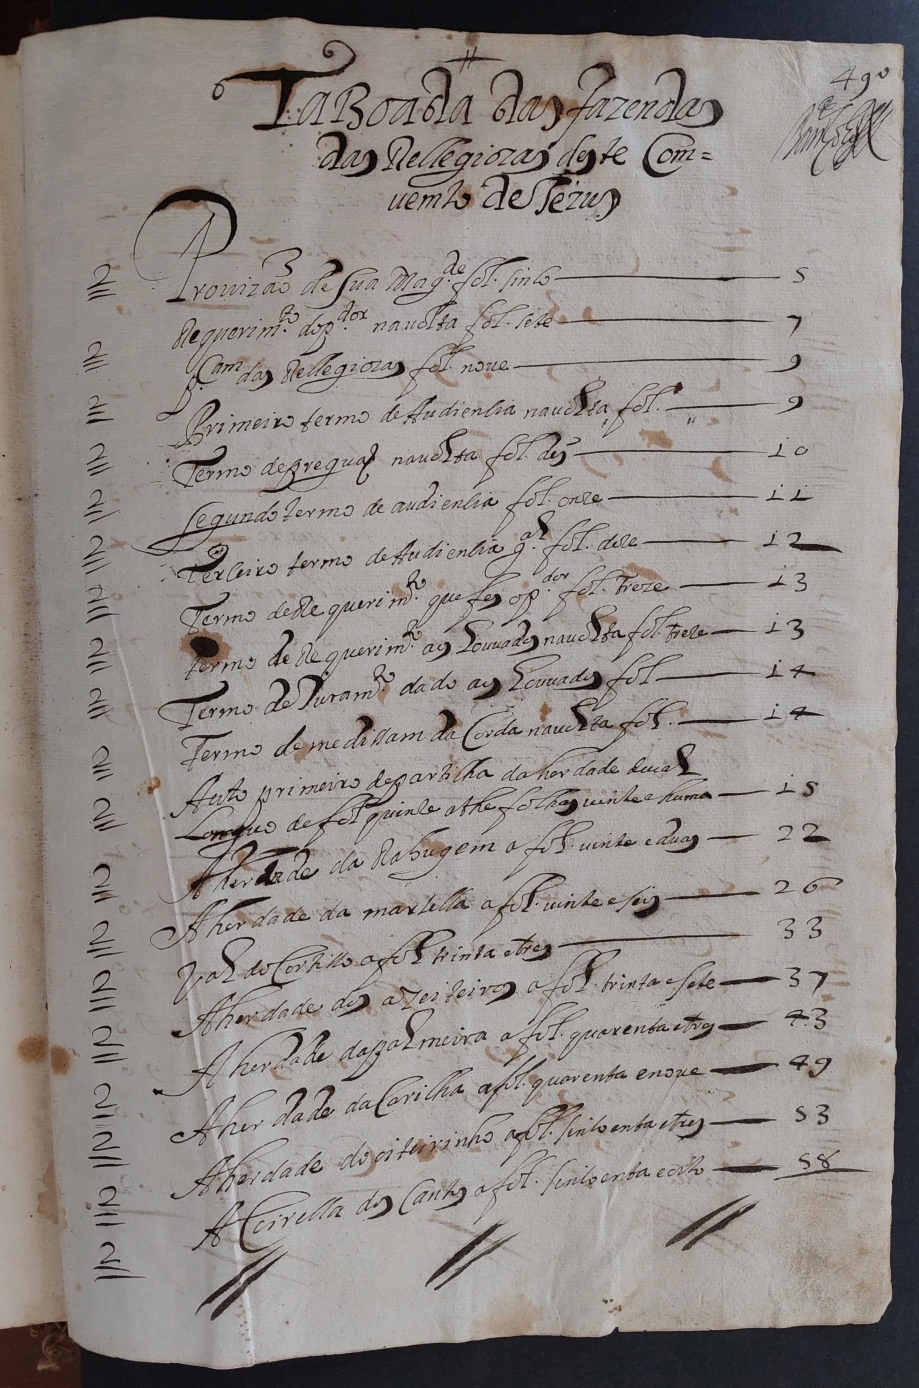 490
Taboada das fazendas
das Rellegiozas deste Com=
uemto de Jezus
Prouizaõ de Sua Mag.de fol. sinco 5
Requerim.to do p.dor na uolta fol. sete 7
das Rellegiozas fol. noue 9
Primeiro termo de Audiençia na uolta fol. 9
Termo de pregual na uolta fol. des 10
Segundo termo de audiençia fol. onze 11
Terceiro termo de Audiençia g.al fol. doze 12
Termo de Requerim.to que fes o p.dor fol. treze 13
Termo de Requerim.to aos Louuados na uolta fol. treze 13
Termo de Juram.to dado aos Louuados fol 14
Termo de medissam da Corda na uolta fol. 14
Auto primeiro de partilha da herdade de ual
Longuo de fol quinze athe folhas uinte e huma 15
A herdade da Rabugem a fol. uinte e duas 22
A herdade da martella a fol. uinte e seis 26
Val do Cortisso a fol trinta e tres 33
A herdade dos azeiteiros a fol. trinta e sete 37
A herdade da palmeira a fol. quarenta e tres 43
A herdade da Corilha a fol. quarenta e noue 49
A herdade do oiteirinho a fol. sincoenta e tres 53
A Coirella dos Cantos a fol. sincoenta e oito 58